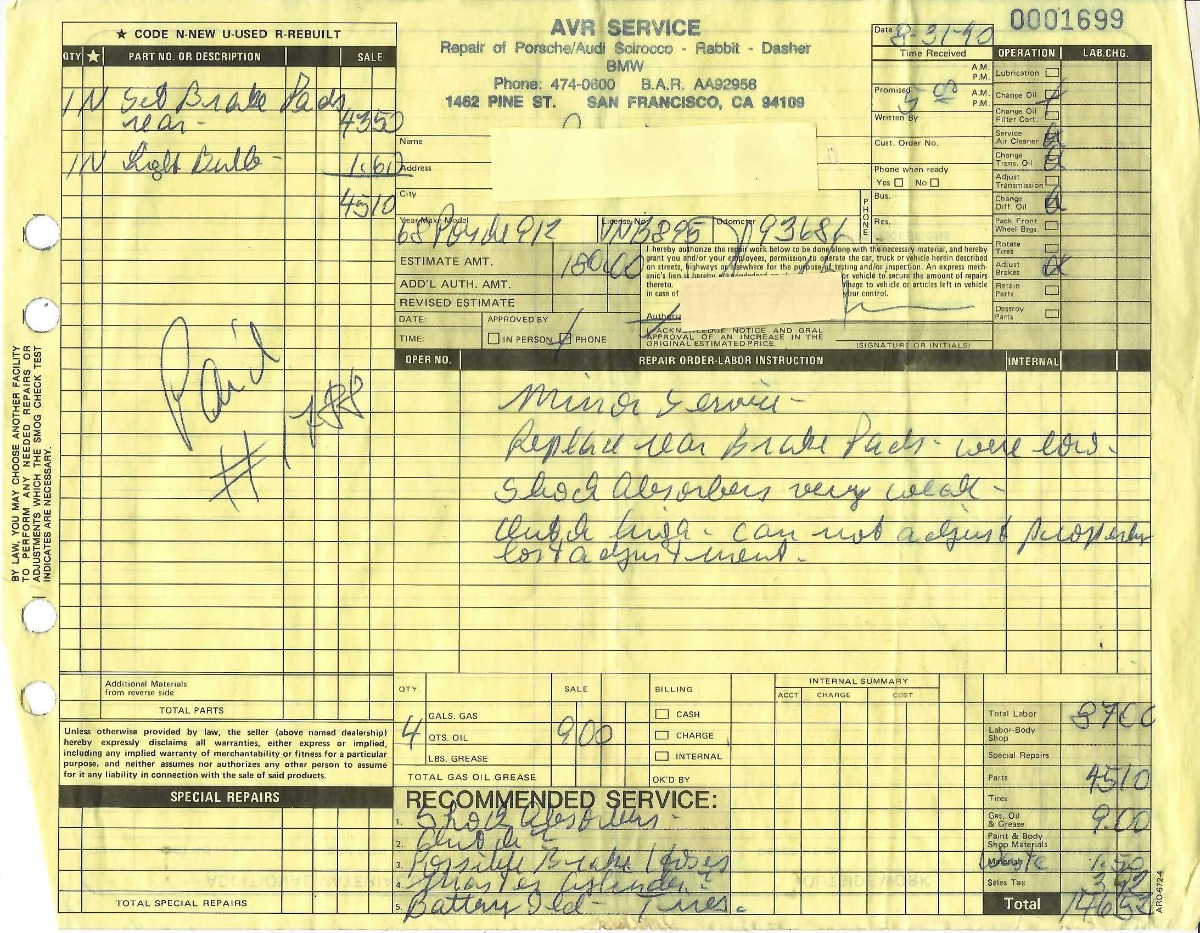 ★ CODE N-NEW U-USED R-REBUILT
QTY ★ PART NO. OR DESCRIPTION SALE
1 N Set Brake Pads
rear - 4350
1 N Light Bulb - 1.60
4510
Paid
BY LAW, YOU MAY CHOOSE ANOTHER FACILITY
TO PERFORM ANY NEEDED REPAIRS OR
ADJUSTMENTS WHICH THE SMOG CHECK TEST
INDICATES ARE NECESSARY.
Additional Materials
from reverse side
TOTAL PARTS
Unless otherwise provided by law, the seller (above named dealership)
hereby expressly disclaims all warranties, either express or implied,
including any implied warranty of merchantability or fitness for a particular
purpose, and neither assumes nor authorizes any other person to assume
for it any liability in connection with the sale of said products.
SPECIAL REPAIRS
TOTAL SPECIAL REPAIRS
AVR SERVICE
Repair of Porsche/Audi Scirocco - Rabbit - Dasher
BMW
Phone: 474-0600 B.A.R. AA92956
1462 PINE ST. SAN FRANCISCO, CA 94109
Name
Address
City
Year-Make-Model License No. Odometer
68 Porsche 912 VNB895 93686
ESTIMATE AMT. 180.00
ADD'L AUTH. AMT.
REVISED ESTIMATE
DATE: APPROVED BY
TIME: IN PERSON PHONE
I hereby authorize the repair work below to be done along with the necessary material, and hereby
grant you and/or your employees, permission to operate the car, truck or vehicle herein described
on streets, highways or elsewhere for the purpose of testing and/or inspection. An express mech-
anic's lien is hereby or vehicle to secure the amount of repairs
thereto. to vehicle or articles left in vehicle
in case of your control.
I ACKNOWLEDGE NOTICE AND ORAL
APPROVAL OF AN INCREASE IN THE
ORIGINAL ESTIMATED PRICE.
(SIGNATURE OR INITIALS)
0001699
Date 8-31-90
Time Received
A.M.
P.M.
Promised 5 00 A.M.
P.M.
Written By
Cust. Order No.
Phone when ready
Yes No
PHONE
Bus.
Res.
OPERATION LAB.CHG.
Lubrication
Change Oil
Change Oil
Filter Cart.
Service
Air Cleaner
Change
Trans. Oil
Adjust
Transmission
Change
Diff. Oil
Pack Front
Wheel Brgs.
Rotate
Tires
Adjust
Brakes
Retain
Parts
Destroy
Parts
OPER NO. REPAIR ORDER-LABOR INSTRUCTION INTERNAL
Minor Service -
Replace rear Brake Pads - were low.
Shock Absorbers very weak -
Clutch high - can not adjust properly
lost adjustment.
QTY. SALE
GALS. GAS
4 QTS. OIL 900
LBS. GREASE
TOTAL GAS OIL GREASE
BILLING
CASH
CHARGE
INTERNAL
OK'D BY
INTERNAL SUMMARY
ACCT CHARGE COST
RECOMMENDED SERVICE:
1. Shock Absorbers -
2. Clutch -
3. Possible Brake Hoses
4. Master Cylinder -
5. Battery Old - Tires.
Total Labor 8700
Labor-Body
Shop
Special Repairs
Parts 4510
Tires
Gas, Oil
& Grease 9.00
Paint & Body
Shop Materials
Waste Materials 1.50
Sales Tax 3.92
Total 14652
ARO-672-4